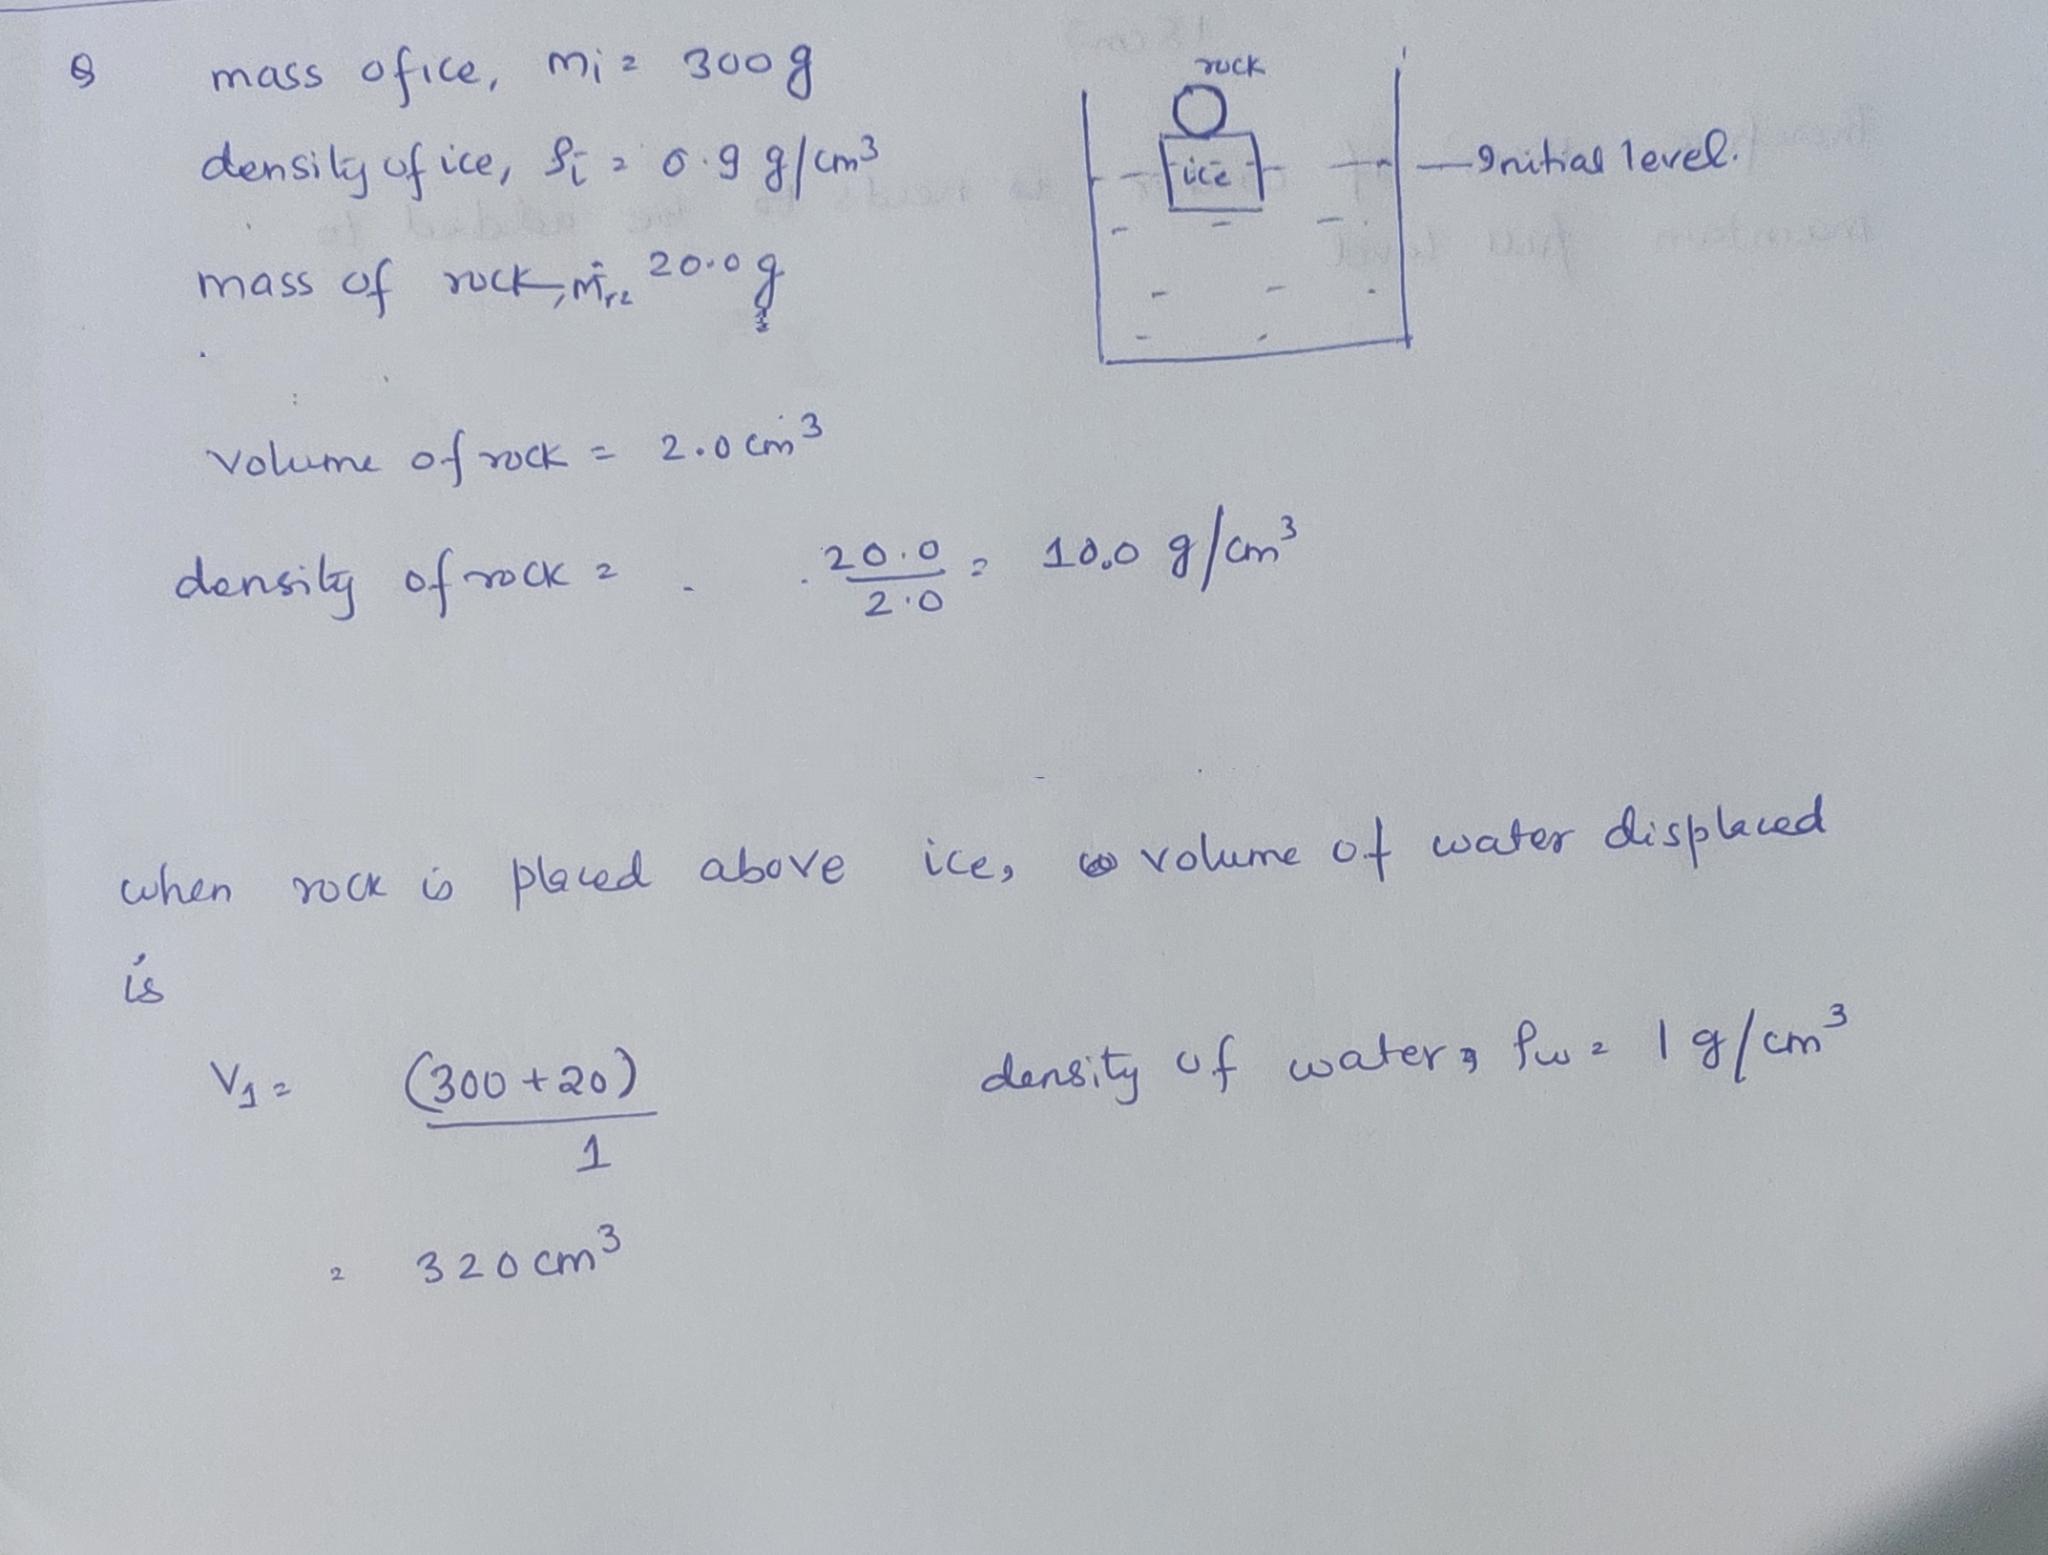 Q mass of ice, mi = 300 g
density of ice, ρi = 0.9 g/cm³
mass of rock, mr = 20.0 g
rock
ice
Initial level.
volume of rock = 2.0 cm³
density of rock = 20.0/2.0 = 10.0 g/cm³
when rock is placed above ice, volume of water displaced
is
V1 = (300 + 20)/1
density of water, ρw = 1 g/cm³
= 320 cm³